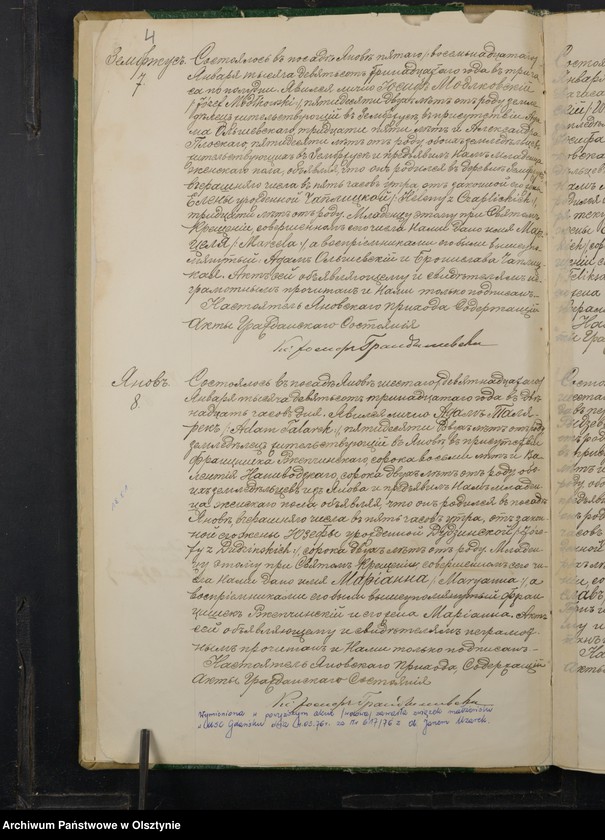 4
Земфтусъ
7
Состоялось въ посадѣ Яновѣ пятаго /восемнадцатаго/
Января тысяча девятьсотъ тринадцатаго года въ три ча-
са по полудни. Явился лично Іосифъ Модлковскій
/ Józef Modłkowski /, пятидесяти двухъ лѣтъ отъ роду земле-
дѣлецъ жительствующій въ Земфтусъ въ присутствіи Ада-
ма Ольшевскаго тридцати пяти лѣтъ и Александра
пятидесяти лѣтъ отъ роду, обоихъ земледѣльцевъ
жительствующихъ въ Земфтусъ и предъявилъ Намъ младенца
женскаго пола, объявляя, что онъ родился въ деревнѣ Земфтусъ
вчерашняго числа въ пять часовъ утра отъ законной его жены
Елены урожденной Чаплицкой / Heleny z Czaplickich /
тридцати лѣтъ отъ роду. Младенцу этому при Святомъ
Крещеніи совершенномъ сего числа Нами дано имя Мар-
целя / Marcela /, а воспріемниками его были вышеупо-
мянутый Адамъ Ольшевскій и Брониславa Чаплиц-
кая. Актъ сей объявляющему и свидѣтелямъ не-
грамотнымъ прочитанъ и Нами только подписанъ.
Настоятель Яновскаго Прихода Содержащій
Акты Гражданскаго Состоянія
Яновъ
8
Состоялось въ посадѣ Яновѣ шестаго /девятнадцатаго/
Января тысяча девятьсотъ тринадцатаго года въ двѣ-
надцать часовъ дня. Явился лично Адамъ Таля-
рекъ / Adam Talarek /, пятидесяти двухъ лѣтъ отъ роду
земледѣлецъ жительствующій въ Яновѣ въ присутствіи
Францишка Ржепчинскаго, сорока восьми лѣтъ и Ва-
лентія сорока двухъ лѣтъ отъ роду обо-
ихъ земледѣльцевъ изъ Янова и предъявилъ Намъ младен-
ца женскаго пола объявляя, что онъ родился въ посадѣ
Яновѣ вчерашняго числа въ пять часовъ утра, отъ закон-
ной его жены Юзефы урожденной Дудзинской / Józe-
fy z Dudzińskich /, сорока двухъ лѣтъ отъ роду. Младен-
цу этому при Святомъ Крещеніи, совершенномъ сего чи-
сла Нами дано имя Маріанна / Maryanna /, а
воспріемниками его были вышеупомянутый Фран-
цишекъ Ржепчинскій и его жена Маріанна. Актъ
сей объявляющему и свидѣтелямъ неграмот-
нымъ прочитанъ и Нами только подписанъ.
Настоятель Яновскаго Прихода, Содержащій
Акты Гражданскаго Состоянія
Wymieniona w powyższym akcie zawarła związek małżeński
w USC Gdańsku za Nr 617/76 z
Archiwum Państwowe w Olsztynie